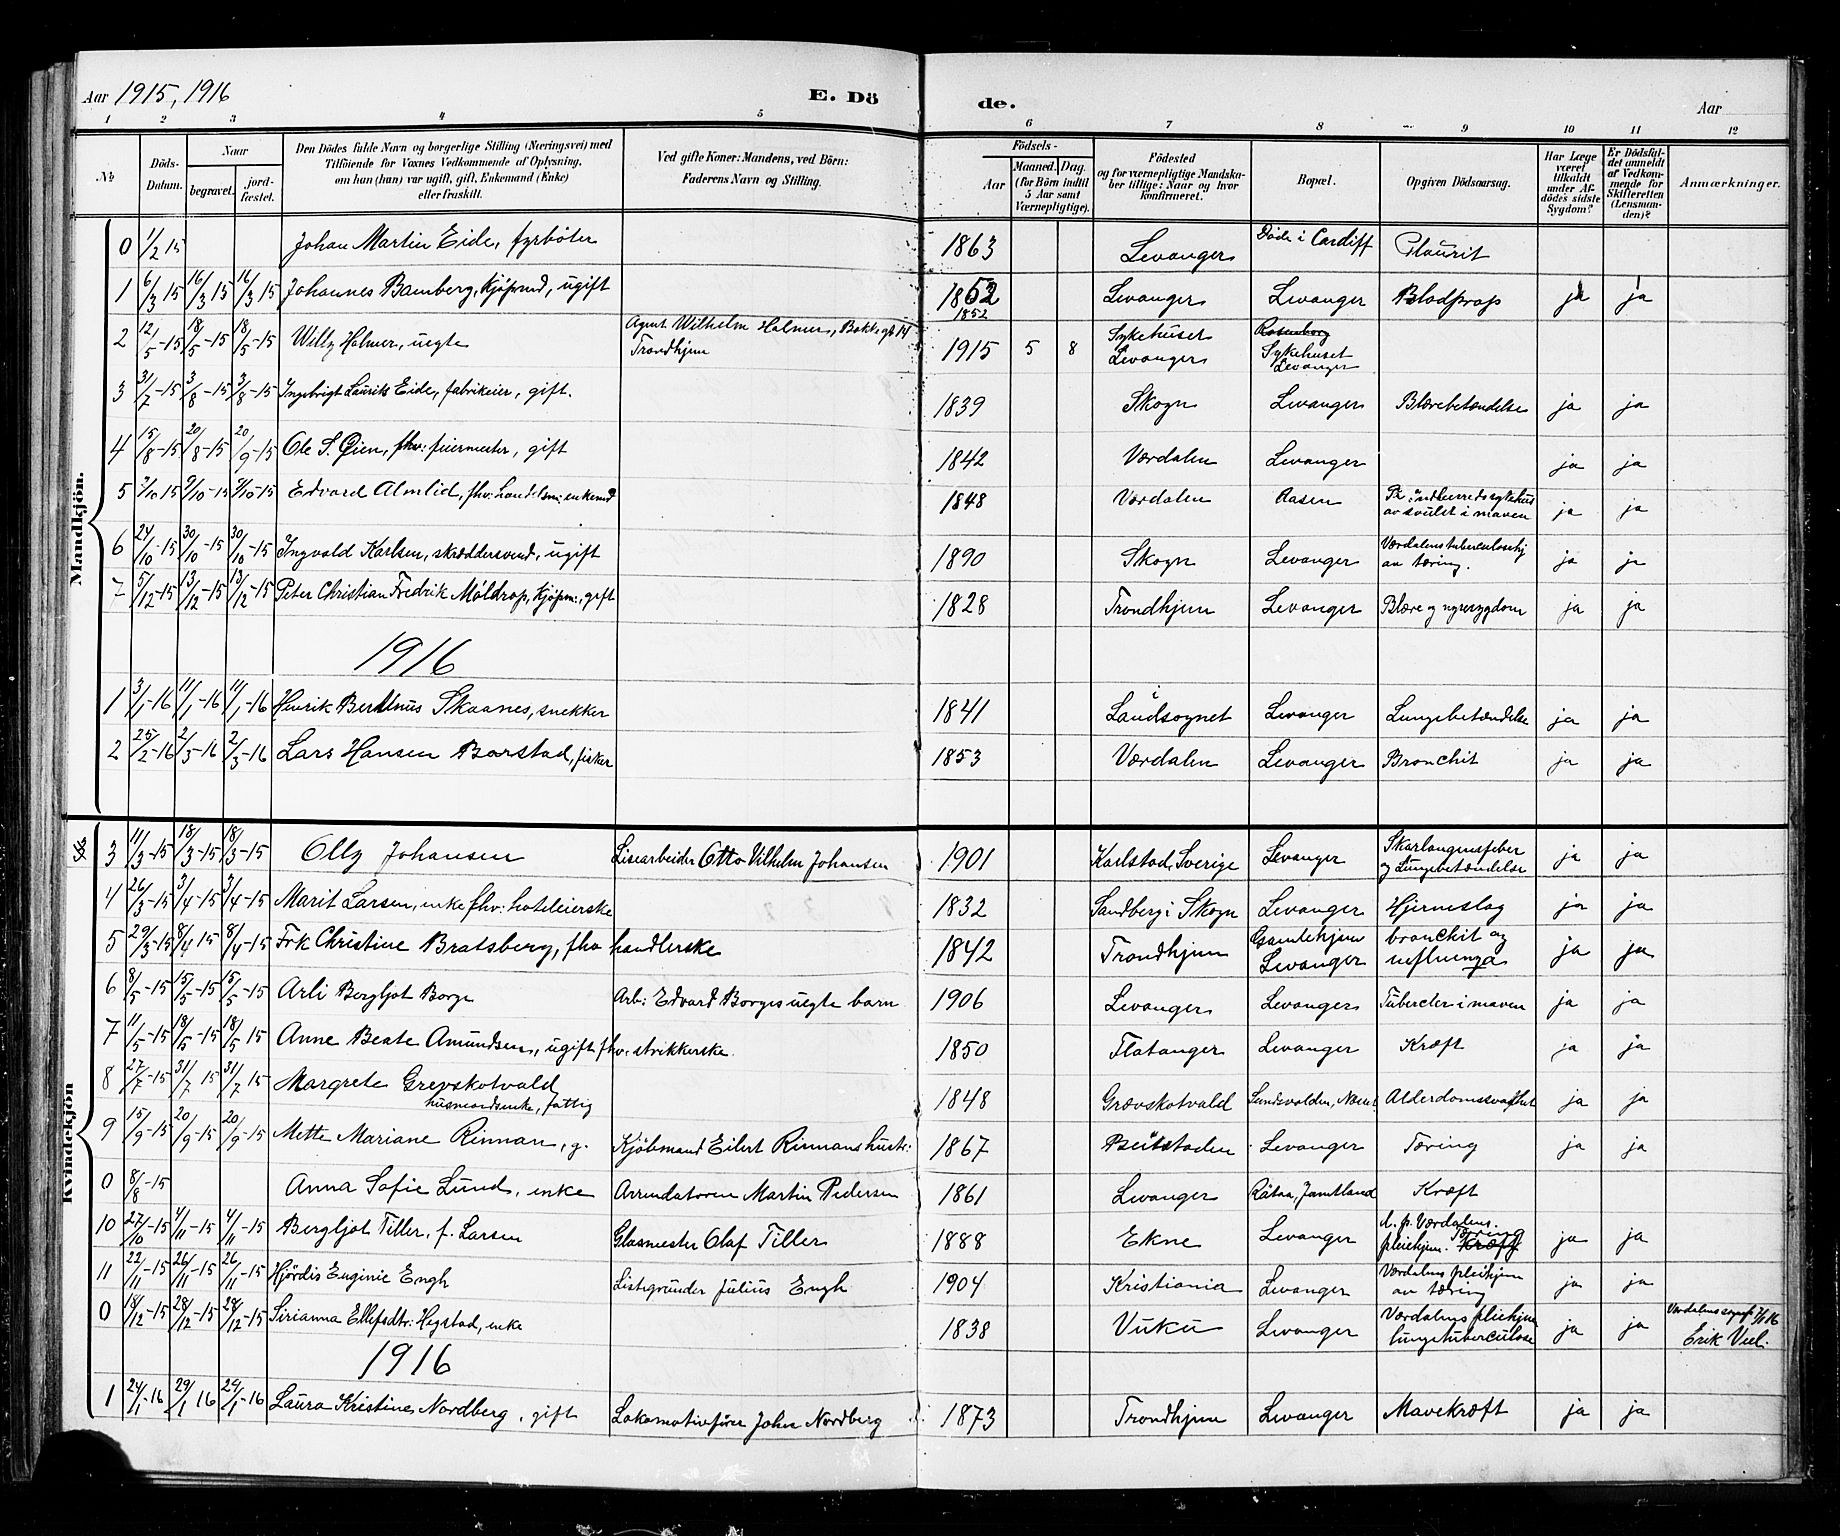 Aar 1915, 1916
E. Dö de.
Aar
1 2 3 4 5 6 7 8 9 10 11 12
№
Döds-Datum.
Naar
begravet.
jord-fæstet.
Den Dödes fulde Navn og borgerlige Stilling (Næringsvei) med
Tilföiende for Voxnes Vedkommende af Oplysning,
om han (hun) var ugift, gift, Enkemand (Enke)
eller fraskilt.
Ved gifte Koner: Mandens, ved Börn:
Faderens Navn og Stilling.
Födsels-
Aar
Maaned. Dag.
(for Börn indtil
5 Aar samt
Værnepligtige).
Födested
og for værnepligtige Mandska-
ber tillige: Naar og hvor
konfirmeret.
Bopæl.
Opgiven Dödsaarsag.
Har Læge
været
tilkaldt
under Af-
dödes sidste
Sygdom?
Er Dödsfal-
det anmeldt
af Vedkom-
mende for
Skifteretten
(Lensman-
den)?
Anmærkninger.
Mandkjön.
0 11/2 15 Johan Martin Eide, fyrböter 1863 Levanger Döde i Cardiff Pleurit
1 6/3 15 16/3 15 16/3 15 Johannes Bamberg, kjöpmd, ugift 1852 1852 Levanger Levanger Blodprop ja ja
2 12/5-15 18/5-15 18/5-15 Willy Holmer, uegte Agent Wilhelm Holmer, Bakkegt 14 Trondhjem 1915 5 8 Sykehuset Levanger Rosenborg Sykehuset Levanger
3 31/7-15 3/8-15 3/8-15 Ingebrigt Laurits Eide, fabrikeier, gift. 1839 Skogn Levanger Blærebetændelse ja ja
4 15/8-15 20/8-15 20/9-15 Ole S. Øien, fhv: feiermester, gift 1842 Værdalen Levanger ja ja
5 2/10 15 9/10-15 9/10-15 Edvard Almlid, fhv: handelsm: enkemd 1848 Værdalen Aasen Pa Indherreds sykehus av svulst i maven ja ja
6 24/10-15 30/10-15 30/10-15 Ingvald Karlsen, skræddersvend, ugift 1890 Skogn Levanger Værdalens tuberculosehj av tæring. ja ja
7 5/12-15 13/12-15 13/12-15 Peter Christian Fredrik Möldrop, kjöpm:, gift 1828 Trondhjem Levanger Blære og nyresygdom ja ja
1916
1 3/1-16 11/1-16 11/1-16 Henrik Berthnus Skaanes, snekker 1841 Landsognet Levanger Lungebetændelse ja ja
2 25/2-16 2/3-16 2/3-16 Lars Hansen Borstad, fisker 1853 Værdalen Levanger Bronchit ja ja
Kvindekjön
3 11/3-15 18/3-15 18/3-15 Olly Johansen Lisearbeider Otto Vilhelm Johansen 1901 Karlstad, Sverige Levanger Skarlagensfeber og Lungebetændelse ja ja
4 26/3-15 3/4-15 3/4-15 Marit Larsen, enke fhv: hoteleierske 1832 Sandberg i Skogn Levanger Hjerneslag ja ja
5 29/3-15 8/4 15 8/4-15 Frk Christine Bratsberg, fhv handlerske 1842 Trondhjem Gamlehjem Levanger bronchit og influenza ja ja
6 8/5-15 15/5-15 15/5-15 Arli Bergljot Borge Arb: Edvard Borges uegte barn 1906 Levanger Levanger Tubercler i maven ja ja
7 11/5-15 18/5-15 18/5 15 Anne Beate Amundsen, ugift fhv: strikkerske 1850 Flatanger Levanger Kræft ja ja
8 27/7-15 31/7 15 31/7 15 Margrete Grevskotvald husmandsenke, fattig 1848 Grævskotvald Sundsvolden, Næset Alderdomssvaghet ja ja
9 15/9-15 20/9-15 20/9-15 Mette Mariane Rinnan, g. Kjöbmand Eilert Rinnans hustr: 1867 Beitstaden Levanger Tæring ja ja
0 8/8-15 Anna Sofie Lund, enke Arrendatoren Martin Pedersen 1861 Levanger Rätan, Jamtland Kræft
10 27/10-15 4/11-15 4/11-15 Bergljot Tiller, f. Larsen Glasmester Olaf Tiller 1888 Ekne Levanger d. p. Værdalens. pleiehjem. Tæring Kræft ja ja
11 22/11-15 26/11-15 26/11-15 Hjördis Euginie Engh Listegründer Julius Engh 1904 Kristiania Levanger Værdalens pleiehjem av tæring ja ja
0 18/12-15 28/12-15 28/12-15 Sirianna Ellefsdtr: Hegstad, enke 1838 Vuku Levanger Værdalens pleiehjem lungetuberculose ja ja Værdalens sogn 7/1 16 Erik Veel.
1916
1 24/1-16 29/1 16 29/1-16 Laura Kristine Nordberg, gift Lokomotivförer John Nordberg 1873 Trondhjem Levanger Mavekræft ja ja